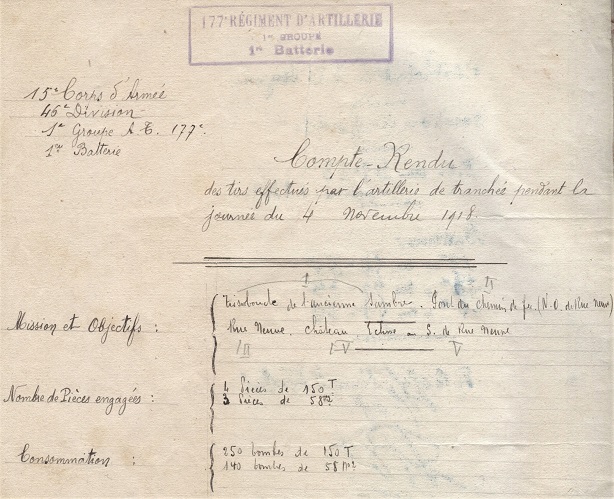 177e RÉGIMENT D'ARTILLERIE
1er GROUPE
1re Batterie
15e Corps d'Armée
46e Division
1er Groupe A T. 177e.
1re Batterie
Compte-Rendu
des tirs effectués par l'artillerie de tranchée pendant la
journée du 4 Novembre 1918.
I II
de l'ancienne Sambre. Pont du chemin de fer. (N.O. de Rue Neuve)
Mission et Objectifs :
Rue Neuve. Château S. de Rue Neuve
III IV V
Nombre de Pièces engagées :
4 Pièces de 150 T
3 Pièces de 58
Consommation :
250 bombes de 150 T
140 bombes de 58